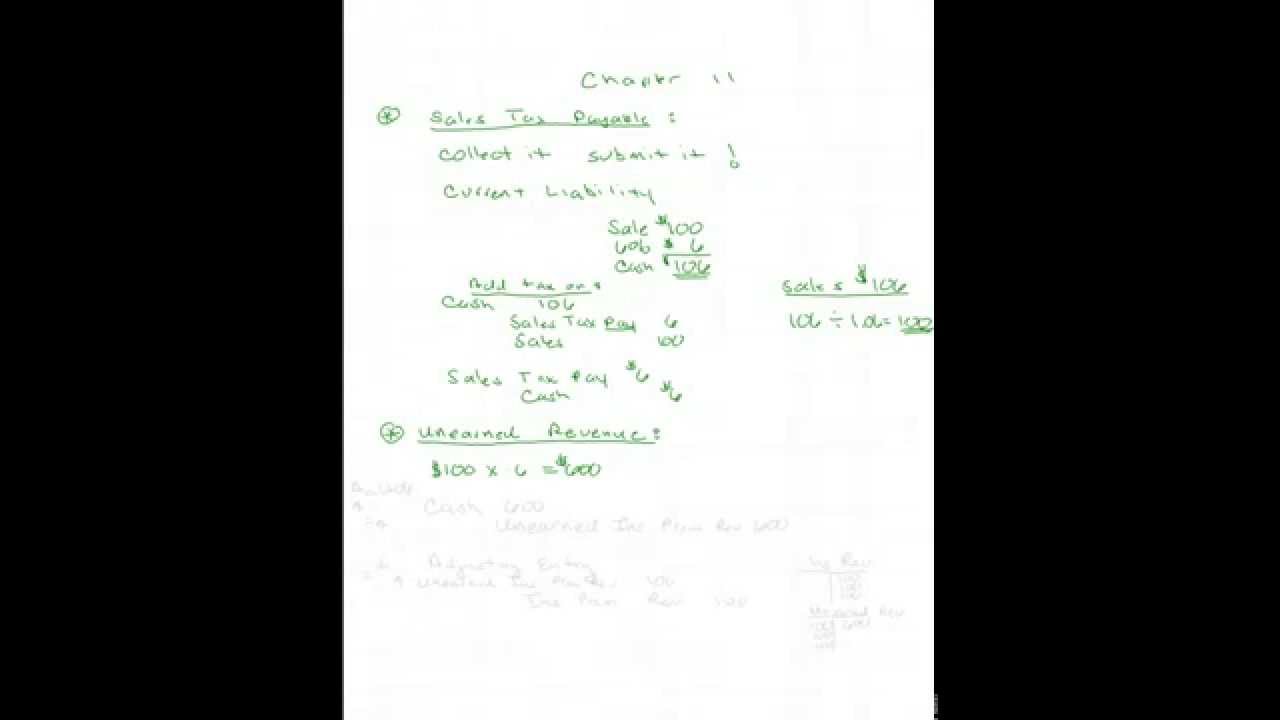 Chapter 11
Sales Tax Payable :
Collect it submit it !
Current Liability
Sale $100
6% $ 6
Cash $106
Add tax on :
Cash 106
Sales Tax Pay 6
Sales 100
Sales $106
106 ÷ 1.06 = 100
Sales Tax Pay $6
Cash $6
Unearned Revenue :
$100 x 6 = $600
Cash 600
Unearned Ins Prem Rev 600
Adjusting Entry
Unearned Ins Prem Rev 100
Ins Prem Rev 100
Ins Rev
100
100
100
Unearned Rev
100 600
100
100